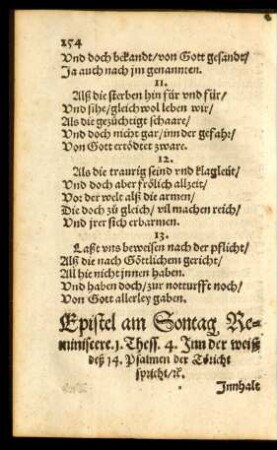 254
Vnd doch bekandt/von Gott gesandt/
Ja auch nach jm genannten.
11.
Alß die sterben hin für vnd für/
Vnd sihe/gleich wol leben wir/
Als die gezüchtigt schaare/
Vnd doch nicht gar/inn der gefahr/
Von Gott ertödtet zware.
12.
Als die traurig seind vnd klagleüt/
Vnd doch aber frölich allzeit/
Vor der welt alß die armen/
Die doch zů gleich/ vil machen reich/
Vnd jrer sich erbarmen.
13.
Laßt vns beweisen nach der pflicht/
Alß die nach Göttlichem gericht/
All hie nicht jnnen haben.
Vnd haben doch/zur notturfft noch/
Von Gott allerley gaben.
Epistel am Sontag Re-
miniscere. 1. Thess. 4. Jnn der weiß
deß 14. Psalmen der Töricht
spricht/ꝛc.
Jnnhalt